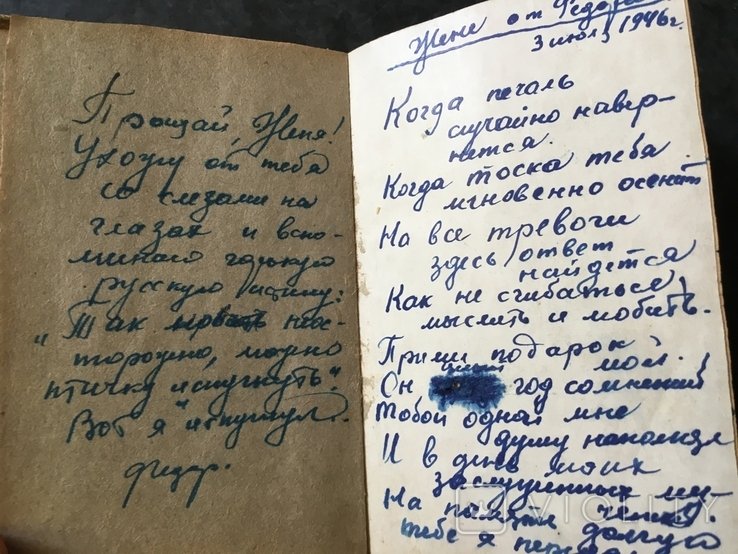 Прощай, Женя!
Ухожу от тебя
со слезами на
глазах и вспо-
минаю горькую
русскую истину:
"Так неос-
торожно, можно
птичку испугнуть".
Вот я и спугнул.
Федор.
Жене от Федора
3 июля 1946 г.
Когда печаль
случайно навер-
нется.
Когда тоска тебя
мгновенно осенит
На все тревоги
здесь ответ
найдется
Как не сгибаться,
мыслить и любить.
Прими подарок
мой!
Он год сомнений
Тобой одной мне
душу наполнял
И в день моих
заслуженных
На память
тебе я
VIOLITY